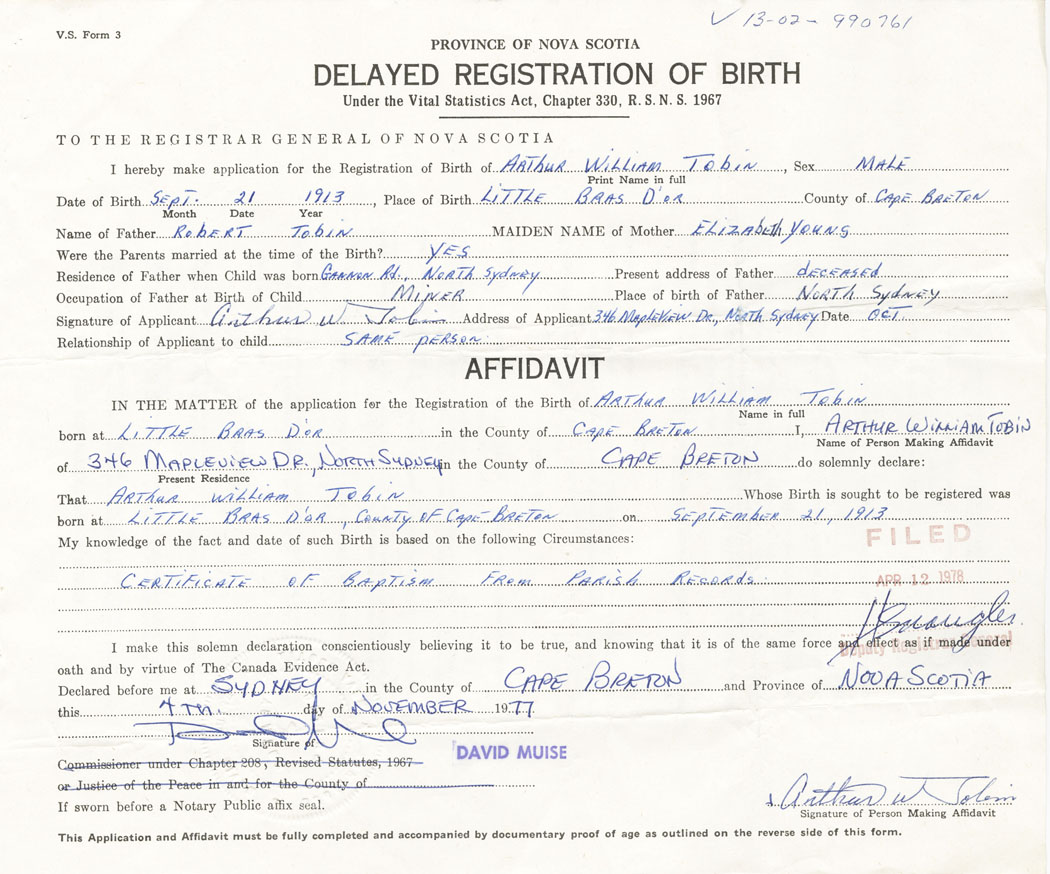 V 13-02-990761
V.S. Form 3
PROVINCE OF NOVA SCOTIA
DELAYED REGISTRATION OF BIRTH
Under the Vital Statistics Act, Chapter 330, R. S. N. S. 1967
TO THE REGISTRAR GENERAL OF NOVA SCOTIA
I hereby make application for the Registration of Birth of ARTHUR WILLIAM TOBIN, Sex MALE
Print Name in full
Date of Birth SEPT. 21 1913, Place of Birth LITTLE BRAS D'OR County of CAPE BRETON
Month Date Year
Name of Father ROBERT TOBIN MAIDEN NAME of Mother ELIZABETH YOUNG
Were the Parents married at the time of the Birth? YES
Residence of Father when Child was born GANNON Rd., NORTH SYDNEY Present address of Father deceased
Occupation of Father at Birth of Child MINER Place of birth of Father NORTH SYDNEY
Signature of Applicant Arthur W Tobin Address of Applicant 346 MAPLEVIEW Dr., NORTH SYDNEY Date OCT.
Relationship of Applicant to child SAME PERSON
AFFIDAVIT
IN THE MATTER of the application for the Registration of the Birth of ARTHUR WILLIAM TOBIN
Name in full
born at LITTLE BRAS D'OR in the County of CAPE BRETON I, ARTHUR WILLIAM TOBIN
Name of Person Making Affidavit
of 346 MAPLEVIEW DR., NORTH SYDNEY in the County of CAPE BRETON do solemnly declare:
Present Residence
That ARTHUR WILLIAM TOBIN Whose Birth is sought to be registered was
born at LITTLE BRAS D'OR, COUNTY OF CAPE BRETON on SEPTEMBER 21, 1913
My knowledge of the fact and date of such Birth is based on the following Circumstances:
FILED
CERTIFICATE OF BAPTISM FROM PARISH RECORDS.
APR 12 1978
I make this solemn declaration conscientiously believing it to be true, and knowing that it is of the same force and effect as if made under
Deputy Registrar General
oath and by virtue of The Canada Evidence Act.
Declared before me at SYDNEY in the County of CAPE BRETON and Province of NOVA SCOTIA
this 4TH. day of NOVEMBER 1977
Signature of
DAVID MUISE
Commissioner under Chapter 208, Revised Statutes, 1967
or Justice of the Peace in and for the County of
If sworn before a Notary Public affix seal.
Arthur W Tobin
Signature of Person Making Affidavit
This Application and Affidavit must be fully completed and accompanied by documentary proof of age as outlined on the reverse side of this form.